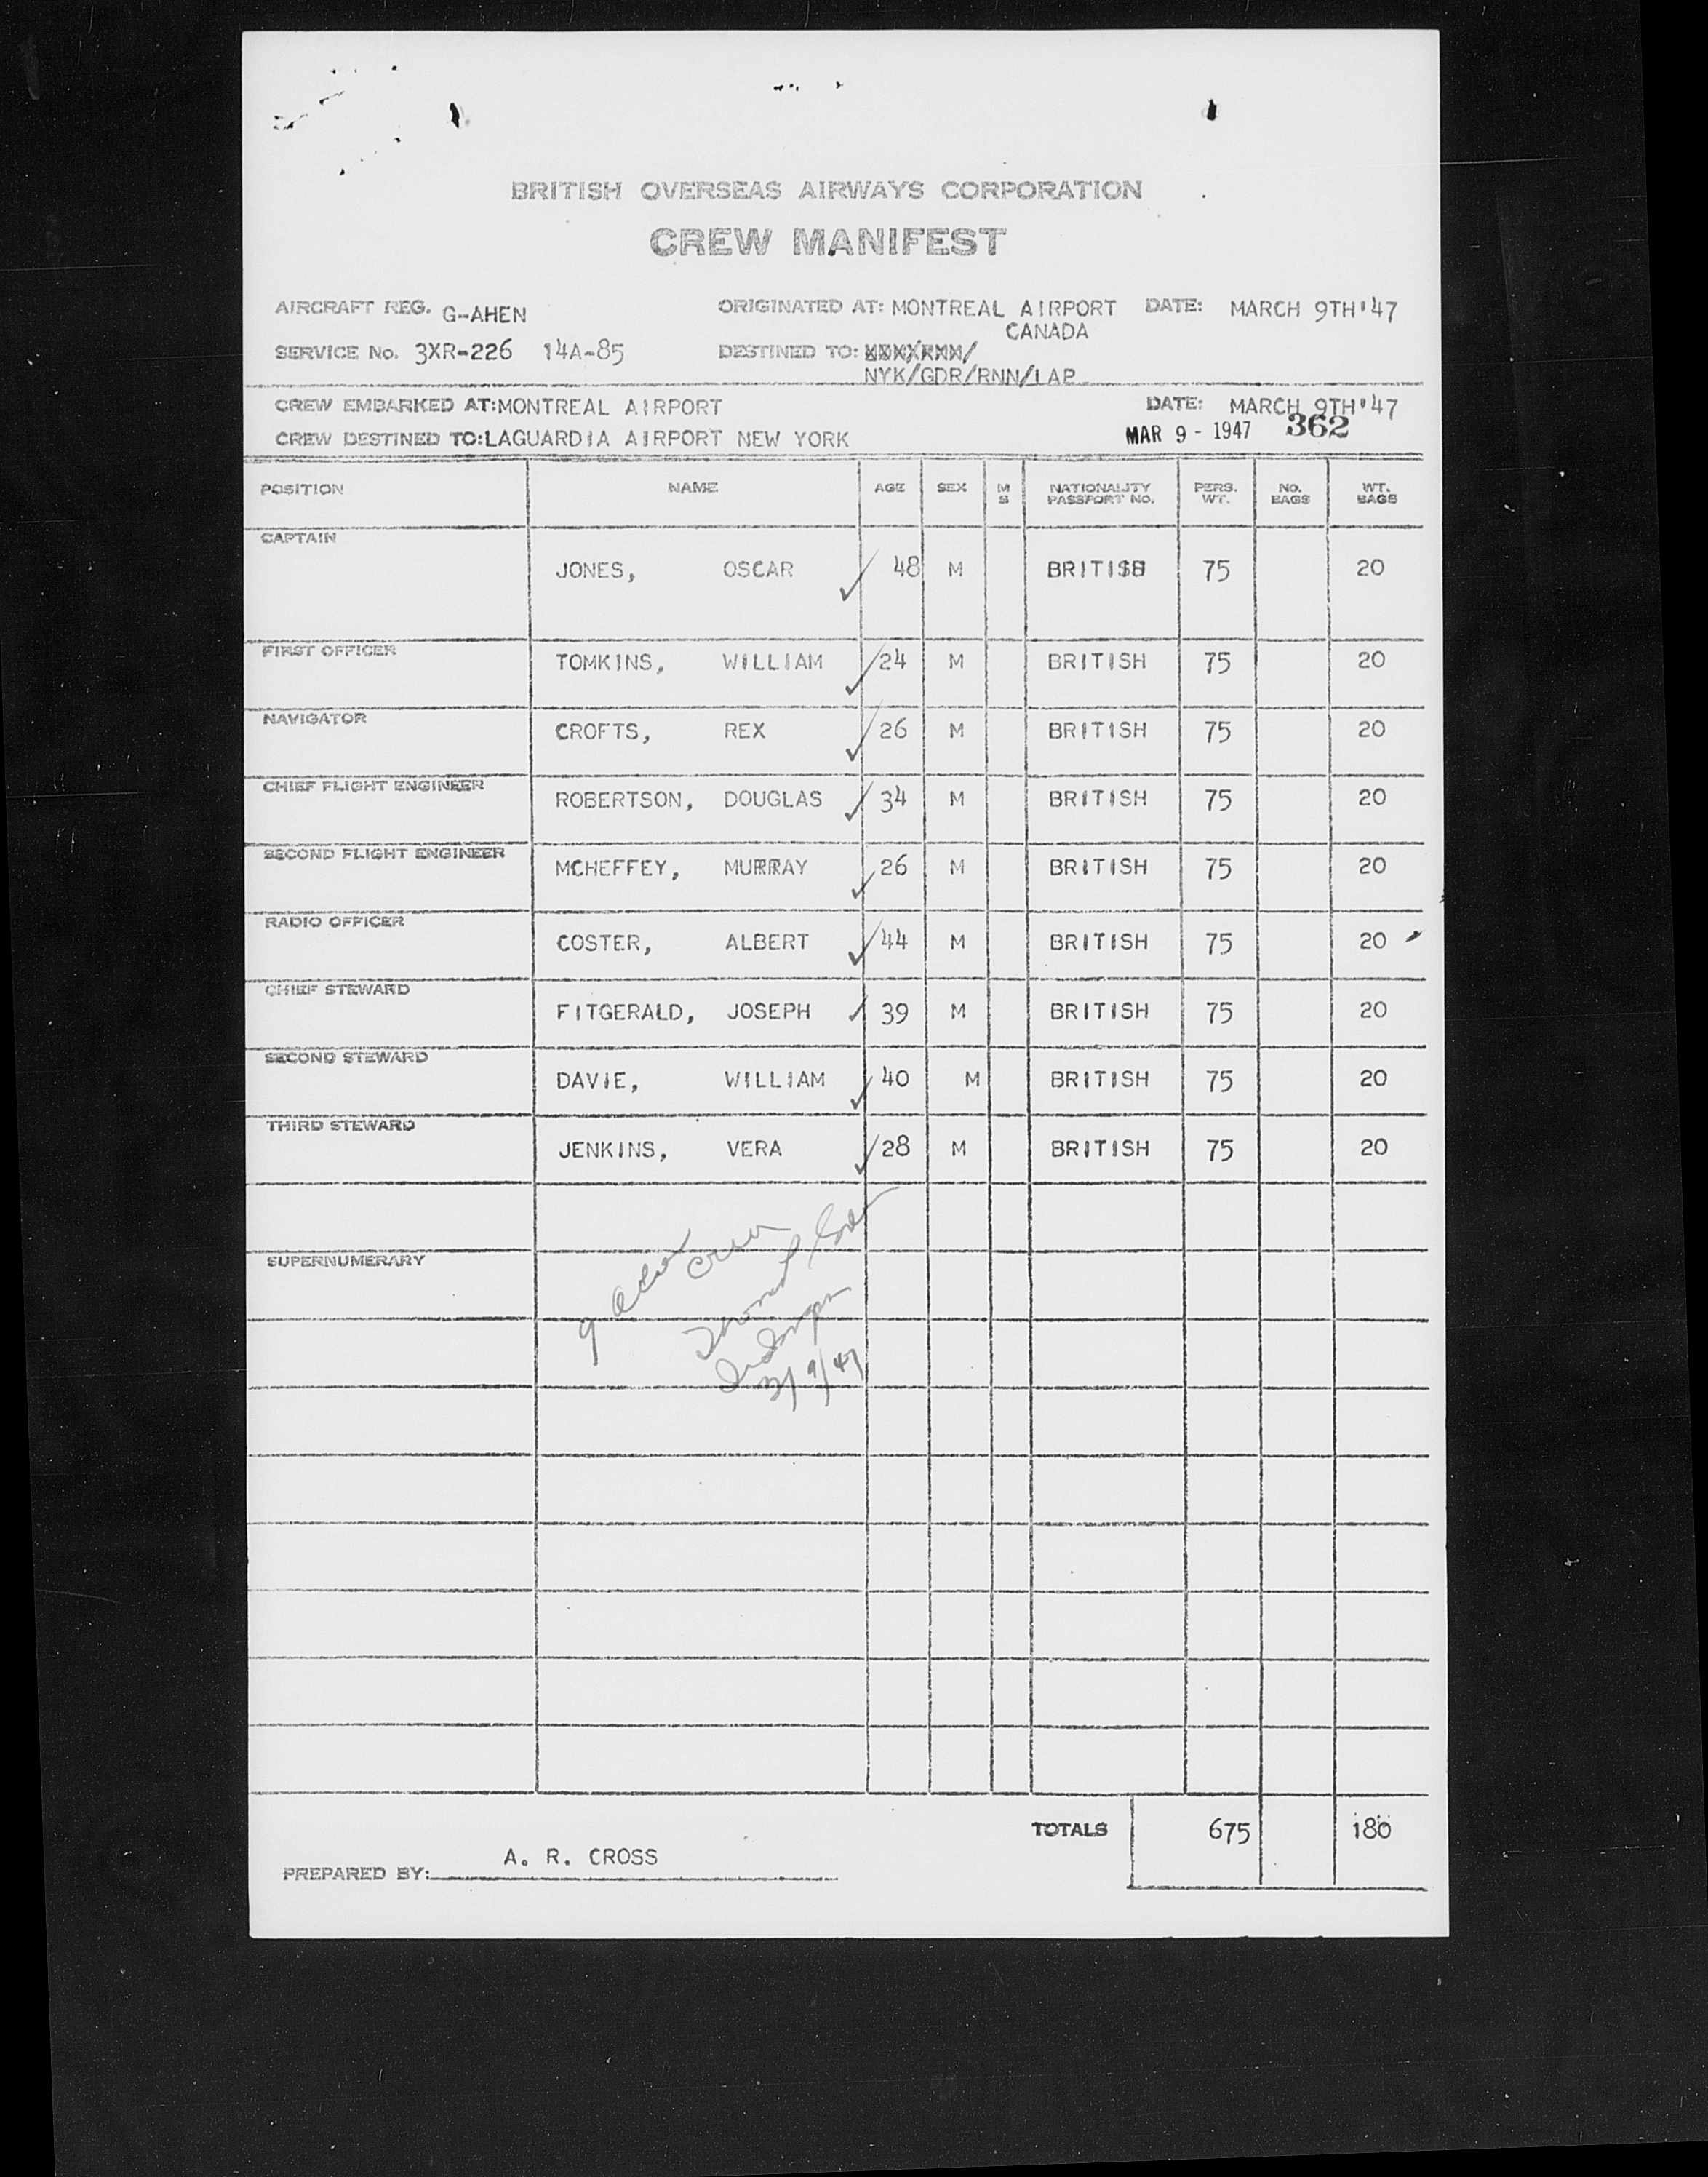 BRITISH OVERSEAS AIRWAYS CORPORATION
CREW MANIFEST
AIRCRAFT REG. G-AHEN ORIGINATED AT: MONTREAL AIRPORT DATE: MARCH 9TH'47
CANADA
SERVICE No. 3XR-226 14A-85 DESTINED TO:
NYK/GDR/RNN/LAP
CREW EMBARKED AT: MONTREAL AIRPORT DATE: MARCH 9TH'47
CREW DESTINED TO: LAGUARDIA AIRPORT NEW YORK MAR 9 - 1947 362
POSITION NAME AGE SEX M S NATIONALITY PASSPORT NO. PERS. WT. NO. BAGS WT. BAGS
CAPTAIN
JONES, OSCAR 48 M BRITISH 75 20
FIRST OFFICER
TOMKINS, WILLIAM 24 M BRITISH 75 20
NAVIGATOR
CROFTS, REX 26 M BRITISH 75 20
CHIEF FLIGHT ENGINEER
ROBERTSON, DOUGLAS 34 M BRITISH 75 20
SECOND FLIGHT ENGINEER
MCHEFFEY, MURRAY 26 M BRITISH 75 20
RADIO OFFICER
COSTER, ALBERT 44 M BRITISH 75 20
CHIEF STEWARD
FITGERALD, JOSEPH 39 M BRITISH 75 20
SECOND STEWARD
DAVIE, WILLIAM 40 M BRITISH 75 20
THIRD STEWARD
JENKINS, VERA 28 M BRITISH 75 20
9 alien crew
SUPERNUMERARY
3/9/47
TOTALS 675 180
PREPARED BY: A. R. CROSS